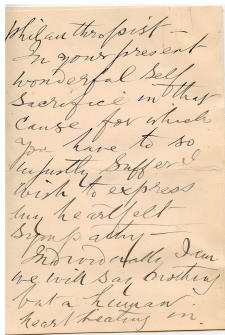 philanthropist —
In your present
wonderful self
sacrifice in that
cause for which
you have to so
unjustly suffer I
wish to express
my heartfelt
sympathy —
Individually I am
we will say nothing
but a human
heart beating in